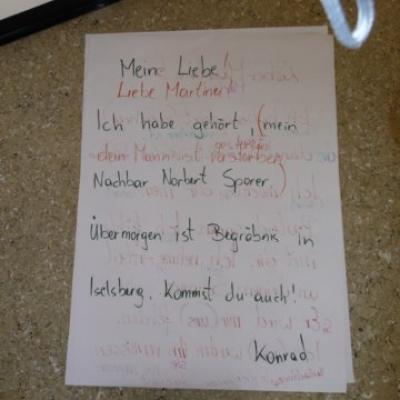 Meine Liebe!
Liebe Martina
Ich habe gehört, (mein
dein Mann ist gestorben verstorben
Nachbar Norbert Sporer.)
Übermorgen ist Begräbnis in
Iselsberg. Kommst du auch!
Konrad